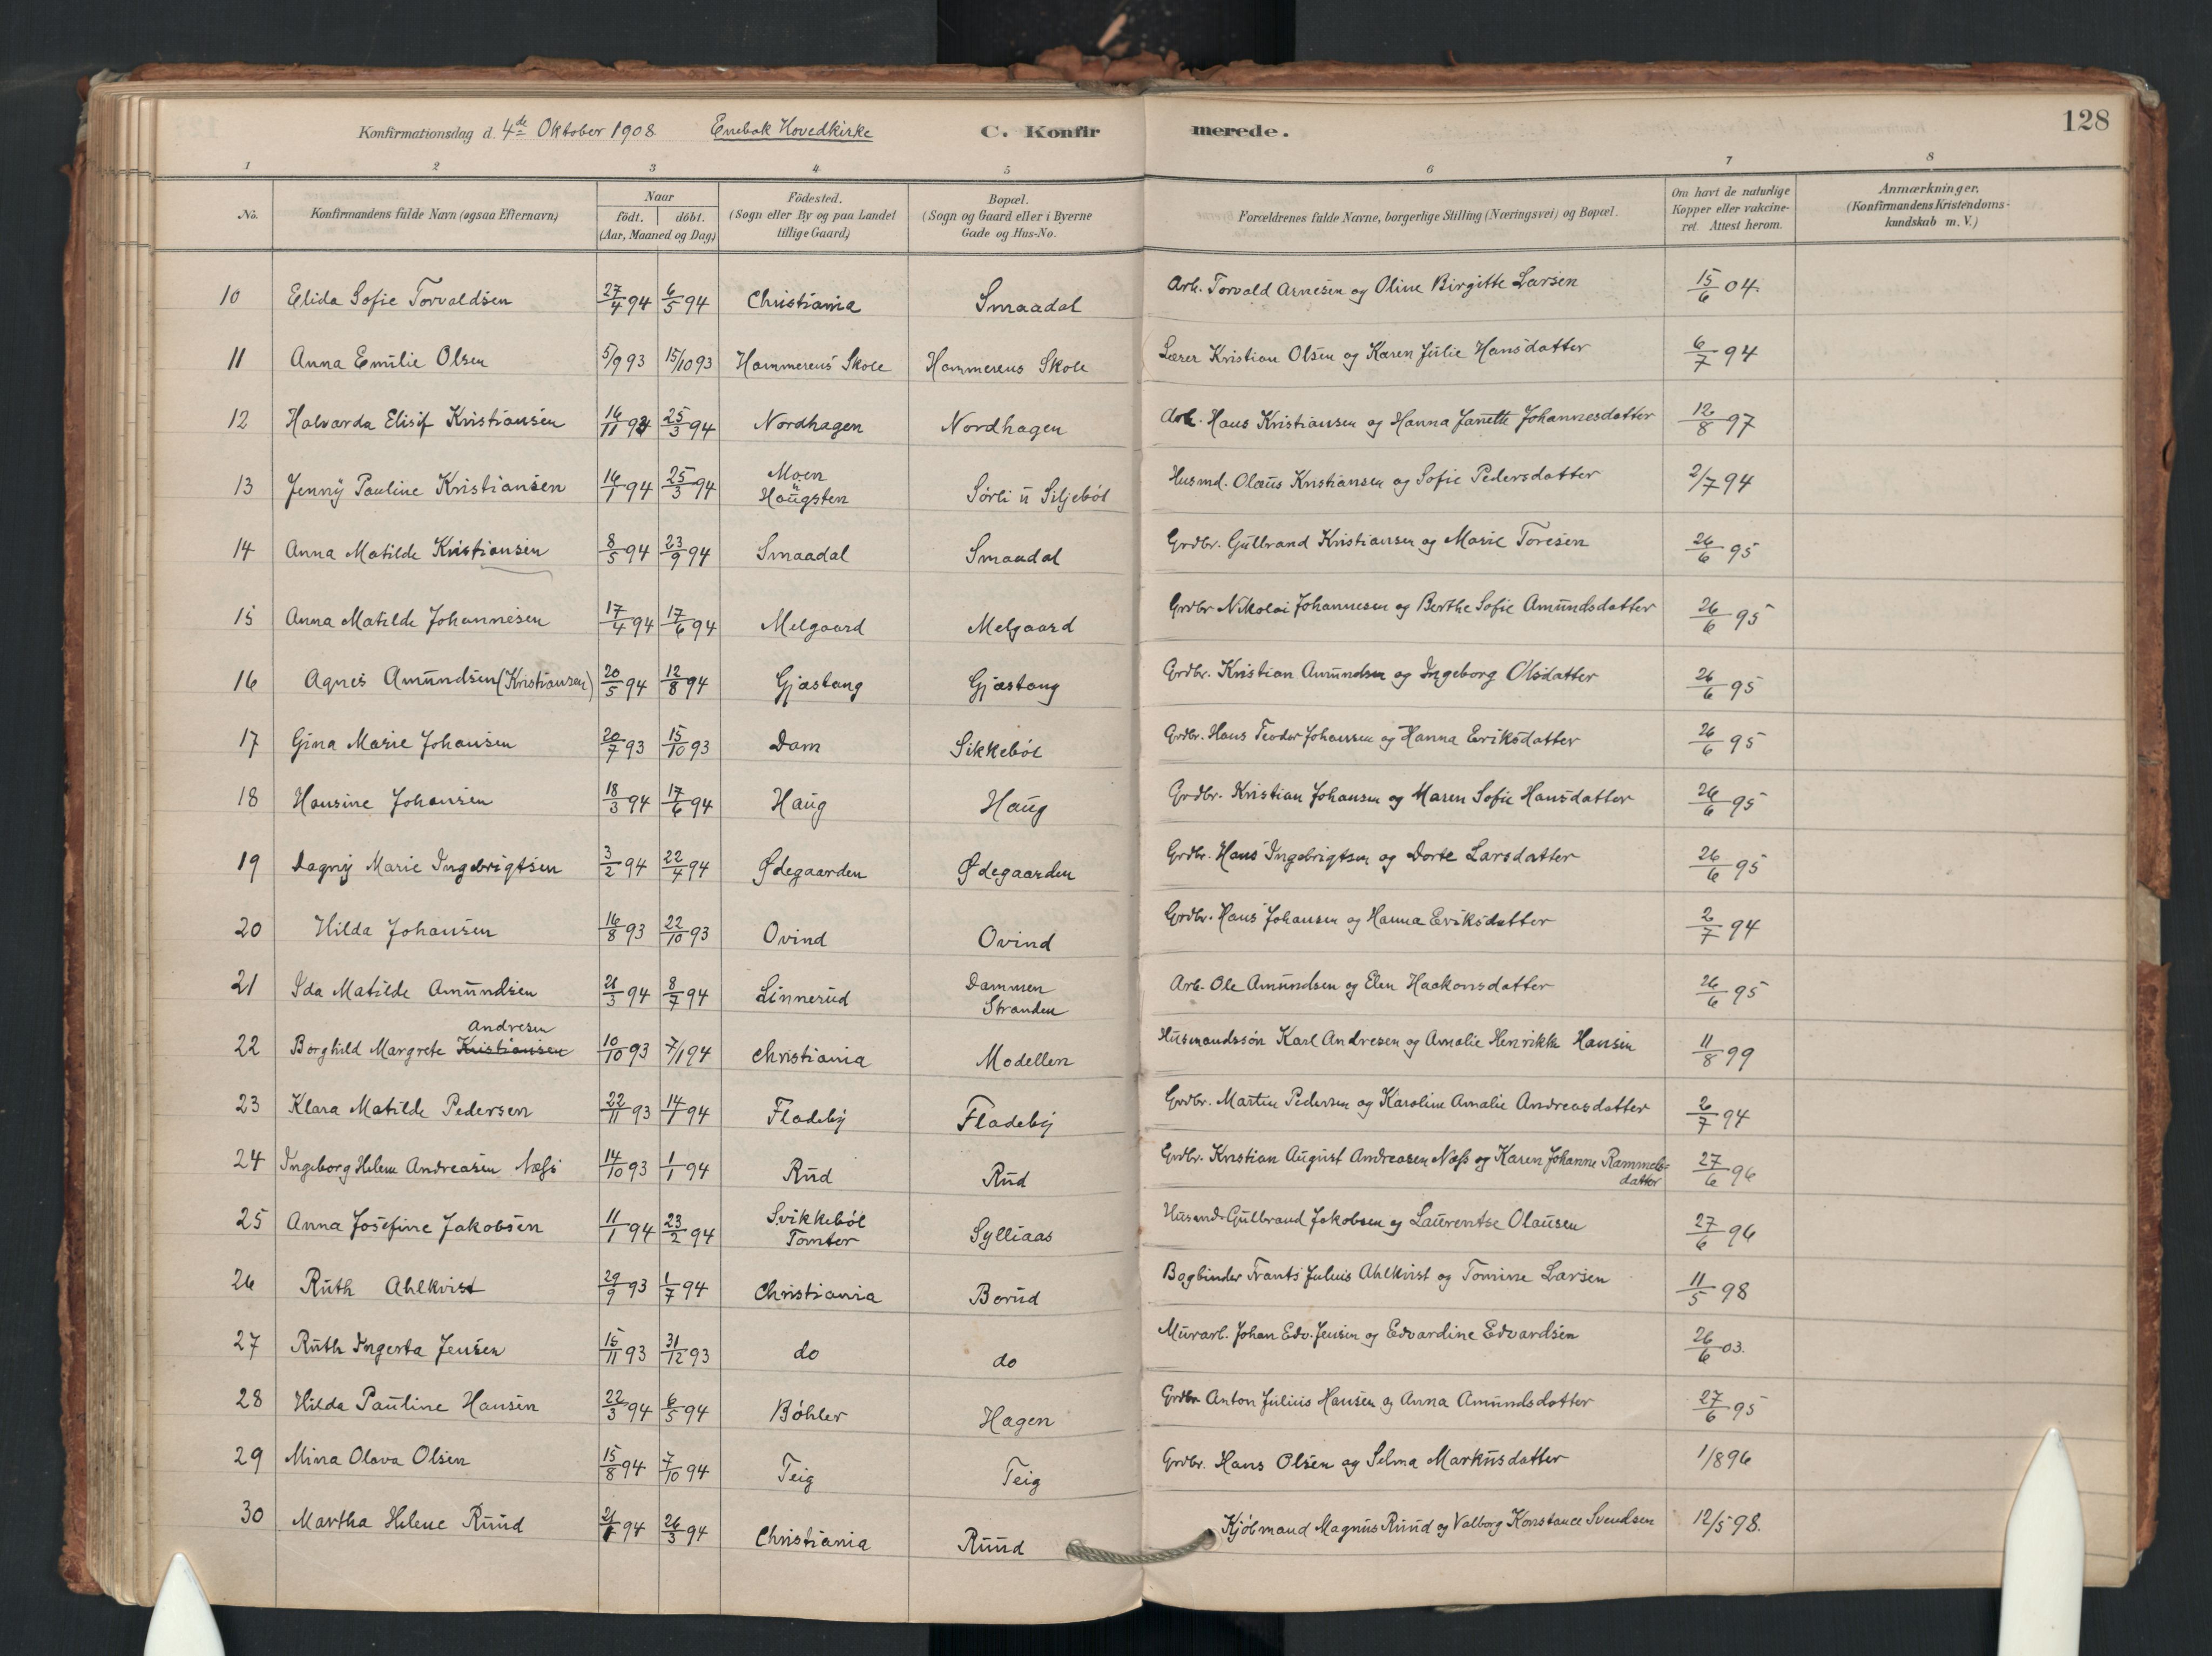 128
Konfirmationsdag d. 4de Oktober 1908 Enebak Hovedkirke C. Konfirmerede.
1 2 3 4 5 6 7 8
No. Konfirmandens fulde Navn (ogsaa Efternavn) Naar født. døbt. (Aar, Maaned og Dag) Fødested. (Sogn eller By og paa Landet tillige Gaard) Bopæl. (Sogn og Gaard eller i Byerne Gade og Hus-No. Forældrenes fulde Navne, borgerlige Stilling (Næringsvei) og Bopæl. Om havt de naturlige Kopper eller vakcineret Attest herom. Anmærkninger. (Konfirmandens Kristendomskundskab m. V.)
10 Elida Sofie Torvaldsen 27/4 94 6/5 94 Christiania Smaadal Arb. Torvald Arnesen og Oline Birgitte Larsen 15/6 04.
11 Anna Emilie Olsen 5/9 93 15/10 93 Hammerens Skole Hammerens Skole Lærer Kristian Olsen og Karen Julie Hansdatter 6/7 94
12 Halvarda Elisif Kristiansen 16/11 93 25/3 94 Nordhagen Nordhagen Arb. Hans Kristiansen og Hanna Janette Johannesdatter 12/8 97
13 Jenny Pauline Kristiansen 16/1 94 25/3 94 Moen u Haugsten Sörli u Siljeböl Husmd. Olaus Kristiansen og Sofie Pedersdatter 2/7 94
14 Anna Matilde Kristiansen 8/5 94 23/9 94 Smaadal Smaadal Grdbr. Gulbrand Kristiansen og Marie Toresen 26/6 95
15 Anna Matilde Johannesen 17/4 94 17/6 94 Melgaard Melgaard Grdbr Nikolai Johannesen og Berthe Sofie Amundsdatter 26/6 95
16 Agnes Amundsen (Kristiansen) 20/5 94 12/8 94 Gjæstang Gjæstang Grdbr. Kristian Amundsen og Ingeborg Olsdatter 26/6 95
17 Gina Marie Johansen 20/7 93 15/10 93 Dam Sikkeböl Grdbr. Hans Teodor Johansen og Hanna Eriksdatter 26/6 95
18 Hansine Johansen 18/3 94 17/6 94 Haug Haug Grdbr. Kristian Johansen og Maren Sofie Hansdatter 26/6 95
19 Dagny Marie Ingebrigtsen 3/2 94 22/4 94 Ødegaarden Ødegaarden Grdbr. Hans Ingebrigtsen og Dorte Larsdatter 26/6 95
20 Hilda Johansen 16/8 93 22/10 93 Ovind Ovind Grdbr. Hans Johansen og Hanna Eriksdatter 2/7 94
21 Ida Matilde Amundsen 21/3 94 8/7 94 Linnerud Dammen Stranden Arb. Ole Amundsen og Elen Haakonsdatter 26/6 95
22 Borghild Margrete Kristiansen Andresen 10/10 93 7/1 94 Christiania Modellen Husmandssön Karl Andresen og Amalie Henrikke Hansen 11/8 99
23 Klara Matilde Pedersen 22/11 93 14/1 94 Fladeby Fladeby Grdbr. Martin Pedersen og Karoline Amalie Andreasdatter 2/7 94
24 Ingeborg Helene Andreasen Næss 14/10 93 1/1 94 Rud Rud Grdbr. Kristian August Andreasen Næss og Karen Johanne Rammelsdatter 27/6 96
25 Anna Josefine Jakobsen 11/1 94 23/2 94 Svikkeböl Tomter Sylliaas Husmd. Gulbrand Jakobsen og Laurentse Olausen 27/6 96
26 Ruth Ahlkvist 29/9 93 1/7 94 Christiania Borud Bogbinder Frants Julius Ahlkvist og Tomine Larsen 11/5 98
27 Ruth Ingerta Jensen 15/11 93 31/12 93 do do Murarb. Johan Edv. Jensen og Edvardine Edvardsen 26/6 03.
28 Hilda Pauline Hansen 22/3 94 6/5 94 Böhler Hagen Grdbr Anton Julius Hansen og Anna Amundsdatter 27/6 95
29 Mina Olava Olsen 15/8 94 7/10 94 Teig Teig Grdbr. Hans Olsen og Selma Markusdatter 1/8 96
30 Martha Helene Ruud 21/1 94 26/3 94 Christiania Ruud Kjöbmand Magnus Ruud og Valborg Konstance Svendsen 12/5 98.